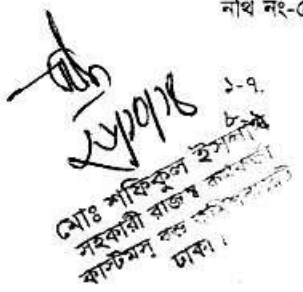 নথি নং-
১-৭.
৮-
মোঃ শফিকুল ইসলাম
সহকারী রাজস্ব কর্মকর্তা
কাস্টমস্ বন্ড কমিশনারেট
ঢাকা।